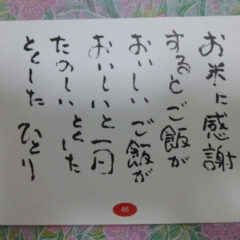 お米に感謝
するとご飯が
おいしい ご飯が
おいしいと一日
たのしい とくした
とくした ひとり
46